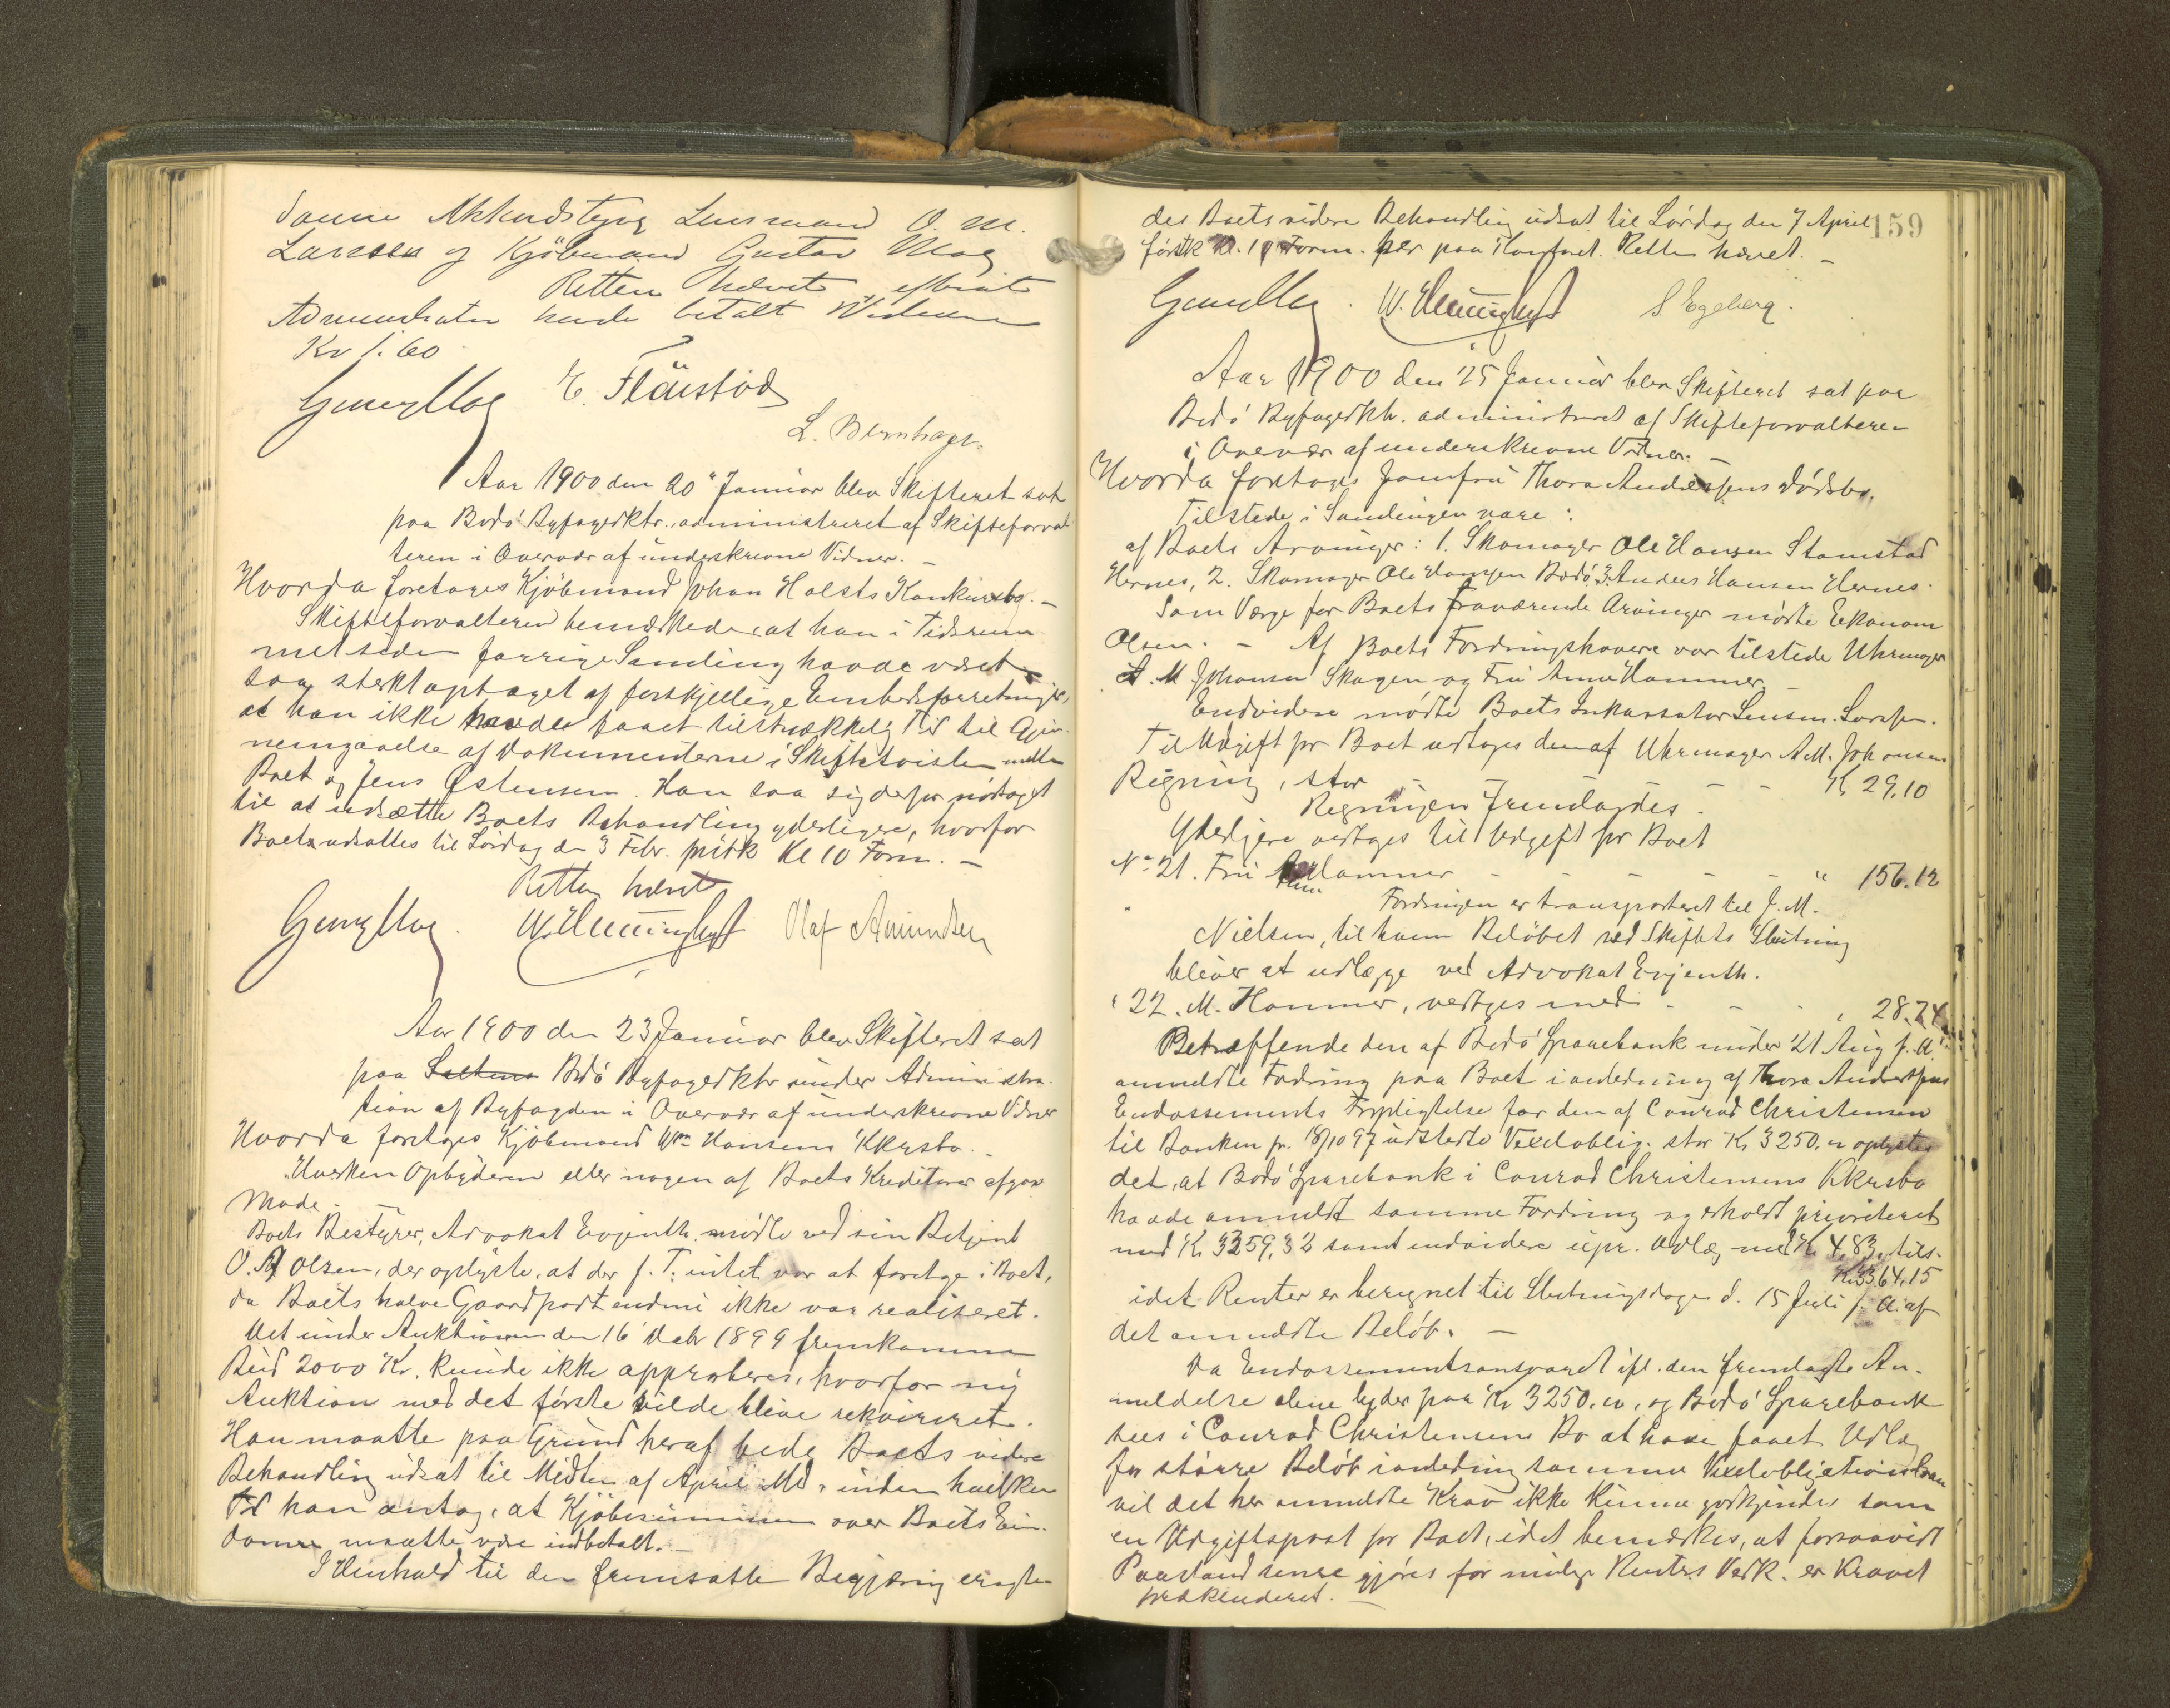 Lensmand O. M.
Larssen og Kjöbmand Gustav Moe
Retten hævet, efterat
Administrator havde betalt Vidnerne
Kr 1.60
Georg Moe E. Flaustad
L. Bernhagn.
Aar 1900 den 20' Januar blev Skifteret sat
paa Bodö Byfogedktr. administreret af Skifteforval
teren i Overvær af underskrevne Vidner. –
Hvorda foretoges Kjöbmand Johan Holsts Konkursbo. –
Skifteforvalteren bemærkede, at han i Tidsrum
met siden forrige Samling havde været
saa sterkt optaget af forskjellige Embedsforretninger,
at han ikke havde faaet tilstrækkelig Tid til Gjen
nemgaaelse af Dokumenterne i Skiftetvisten mellem
Boet og Jens Østensen. Han saa sig derfor nödsaget
til at udsætte Boets Behandling yderligere, hvorfor
Boet udsattes til Lördag den 3 Febr. präk Kl 10 Form. –
Retten hævet
Georg Moe. W. Hemminghytt Olaf Amundsen
Aar 1900 den 23 Januar blev Skifteret sat
paa Saltens Bodö Byfogedktr under Administra
tion af Byfogden i Overvær af underskrevne Vidner
Hvorda foretoges Kjöbmand Wm Hansens Kkrsbo. –
Hverken Opbyderen eller nogen af Boets Kreditorer afgav
Möde. –
Boets Bestyrer, Advokat Evjenth mödte ved sin Betjent
O. A Olsen, der oplyste, at der f. T. intet var at foretage i Boet,
da Boets halve Gaardpart endnu ikke var realiseret.
Det under Auktionen den 16' Decbr 1899 fremkomne
Bud 2000 Kr. kunde ikke approberes, hvorfor ny
Auktion med det förste vilde blive rekvireret.
Han maatte paa Grund heraf bede Boets videre
Behandling udsat til Midten af April Md, inden hvilken
Tid han antog, at Kjöbesummen over Boets Eien
domme maatte være indbetalt. –
I Henhold til den fremsatte Begjæring eragtes
des Boets videre Behandling udsat til Lördag den 7 April
först Kl. 10 Form. her paa Kontoret. Retten hævet. –
159
Georg Moe. W. Hemminghytt S Egeberg.
Aar 1900 den 25 Januar blev Skifteret sat paa
Bodö Byfogedktr. administreret af Skifteforvalteren
i Overvær af underskrevne Vidner. –
Hvorda foretoges Jomfru Thora Andersens Dödsbo.
Tilstede i Samlingen vare:
af Boets Arvinger: 1. Skomager Ole Hansen Stamstad
Hernes, 2. Skomager Ole Hansen Bodö, 3. Anders Hansen Hernes.
Som Værge for Boets fraværende Arvinger mödte Ekonom
Olsen. – Af Boets Fordringshavere var tilstede Uhrmager
A. M Johansen Skagen og Fru Anna Hammer
Endvidere mödte Boets Inkassator Lensm. Larssen.
Til Udgift for Boet vedtoges den af Uhrmager A.M. Johansen
Regning, stor – – Kr 29,10
Regningen fremlagdes.
Yderligere vedtoges til Udgift for Boet
No 21. Fru Anna Hammer – – – – – " 156.12
Fordringen er transporteret til J. M.
Nielsen, til hvem Belöbet ved Skiftets Slutning
bliver at udlægge ved Advokat Evjenth.
" 22. M. Hammer, vedtoges med – – – " 28.74
Betræffende den af Bodö Sparebank under 21 Aug f. A.
anmeldte Fordring paa Boet i anledning af Thora Andersens
Endossements Forpligtelse for den af Conrad Christensen
til Banken pr. 18/10 97 udstedte Vexeloblig. stor Kr 3250.00 oplystes
det, at Bodö Sparebank i Conrad Christensens Kkrsbo
havde anmeldt samme Fordring og erholdt prioriteret
med Kr. 3359,32 samt endvidere upr. Udlæg med Kr 4,83, tils.
Kr 3364,15
idet Renter er beregnet til Slutningsdagen d. 15 Juli f. A. af
det anmeldte Belöb. –
Da Endossementsansvaret ifl. den fremlagte An-
meldelse alene lyder paa Kr 3250.00, og Bodö Sparebank
sees i Conrad Christensens Bo at have faaet Udlæg
for större Belöb i anledning samme Vexelobligationslaan
vil det her anmeldte Krav ikke kunne godkjendes som
en Udgiftspost for Boet, idet bemærkes, at forsaavidt
Paastand senere gjöres for mulige Renters Vedk. er Kravet
prækluderet. –